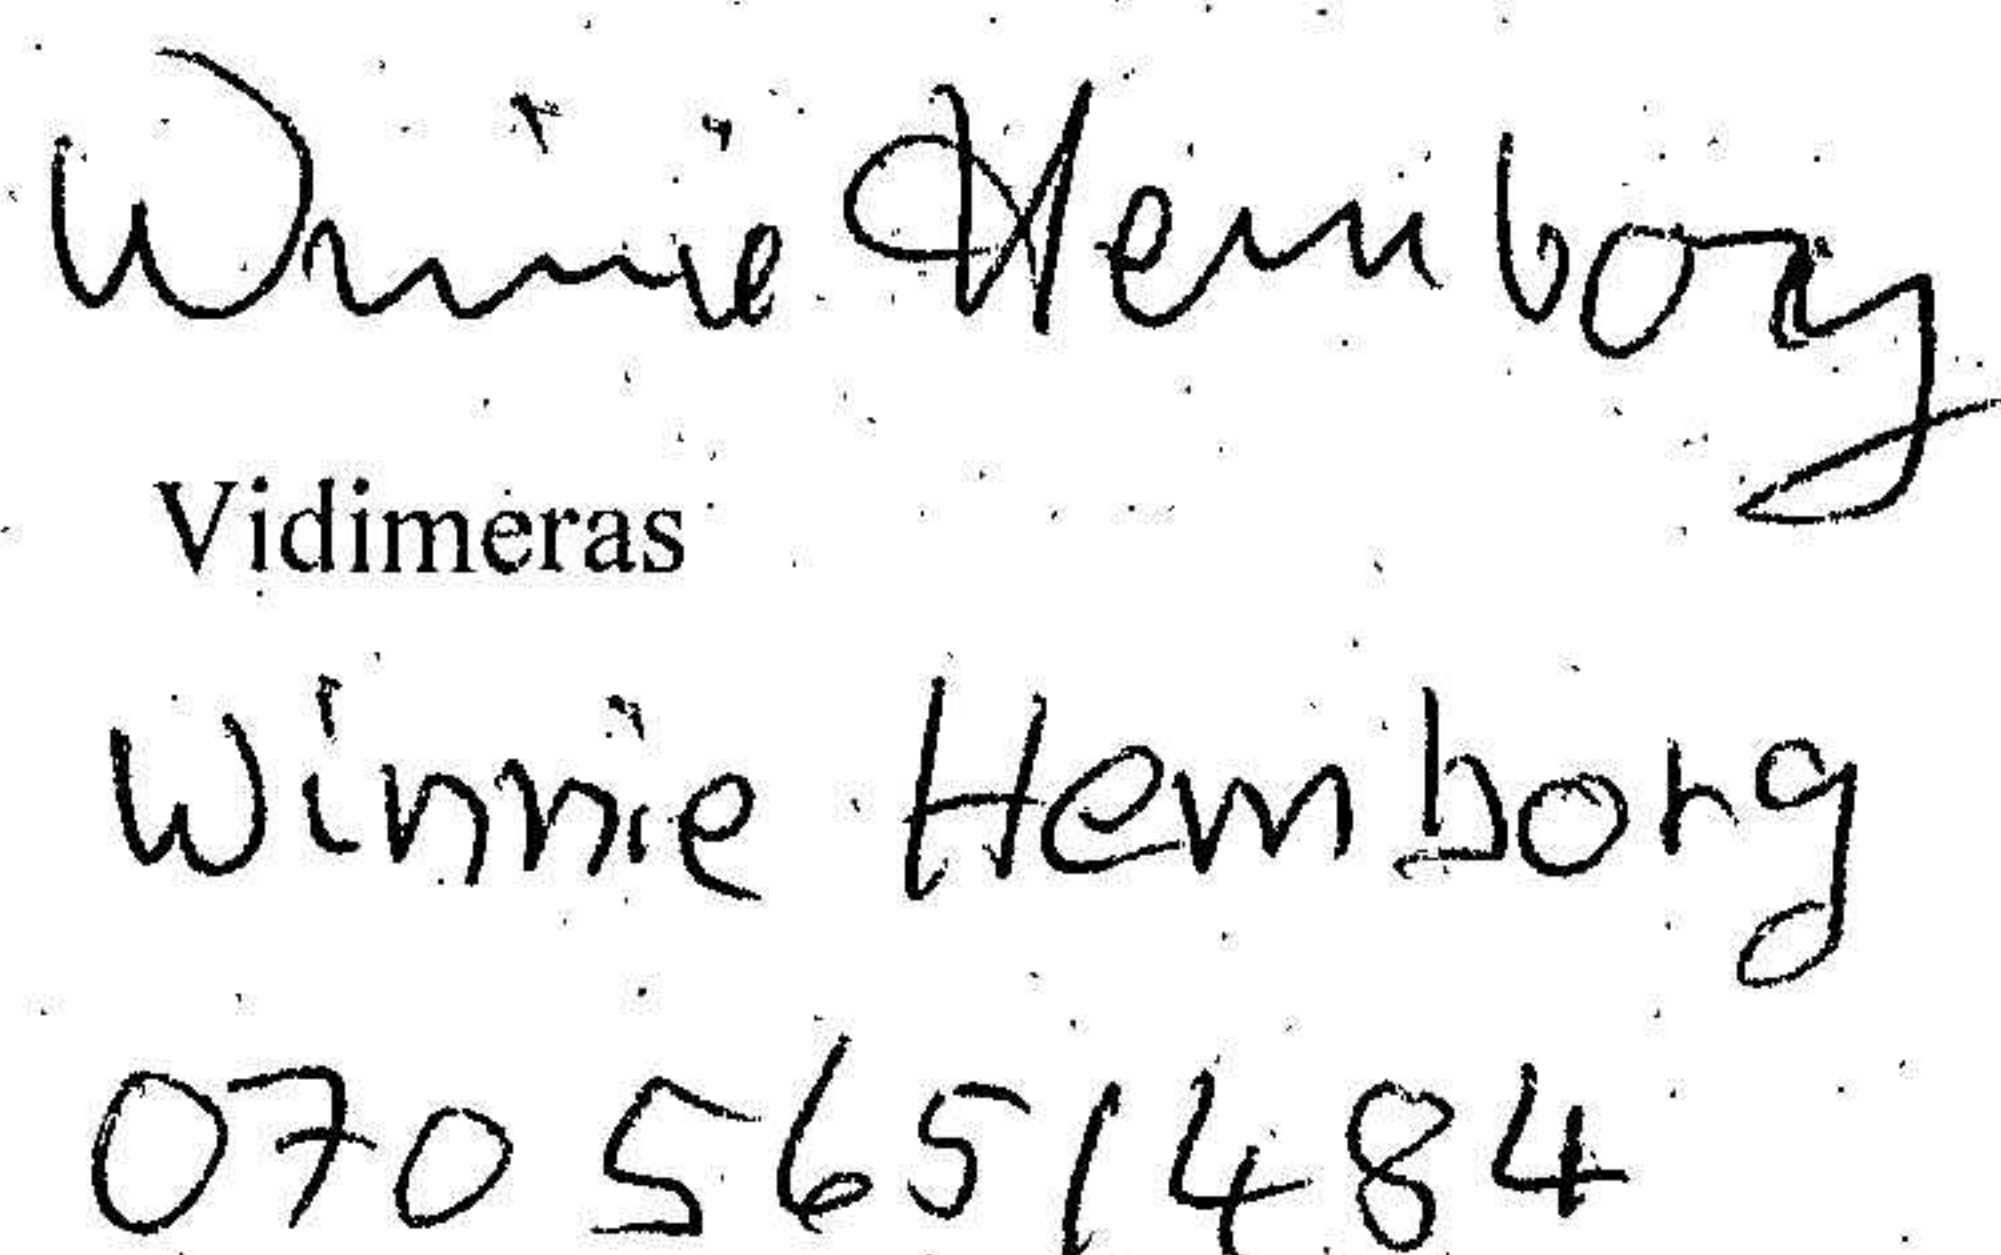 Winnie Hemborg
Vidimeras
Winnie Hemborg
070 5651484